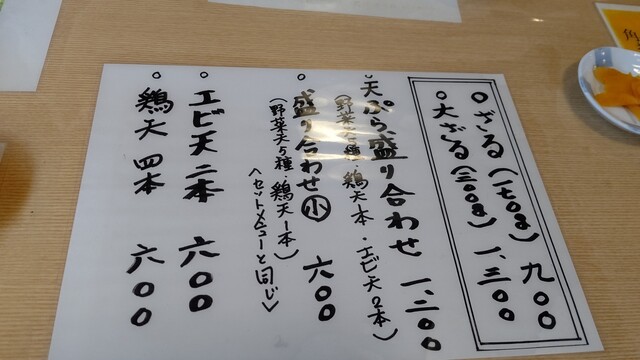 ○ざる(一七〇g) 九〇〇
○大ざる(三〇〇g) 一、三〇〇
○天ぷら盛り合わせ 一、二〇〇
・鶏天一本・エビ天2本)
○盛り合わせ小 六〇〇
(野菜天5種・鶏天一本)
<セットメニューと同じ>
○エビ天二本 六〇〇
○鶏天四本 六〇〇